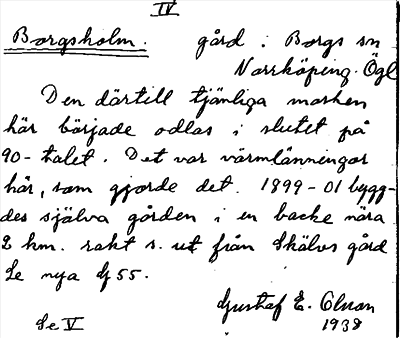 IV
Borgsholm. gård i Borgs sn
Norrköping. Ögl
Den därtill tjänliga marken
här började odlas i slutet på
90-talet. Det var värmlänningar
här, som gjorde det. 1899-01 bygg-
des själva gården i en backe nära
2 km. rakt s. ut från Skälvs gård
Se nya G 55.
Gustaf E. Olsson
Se V 1938